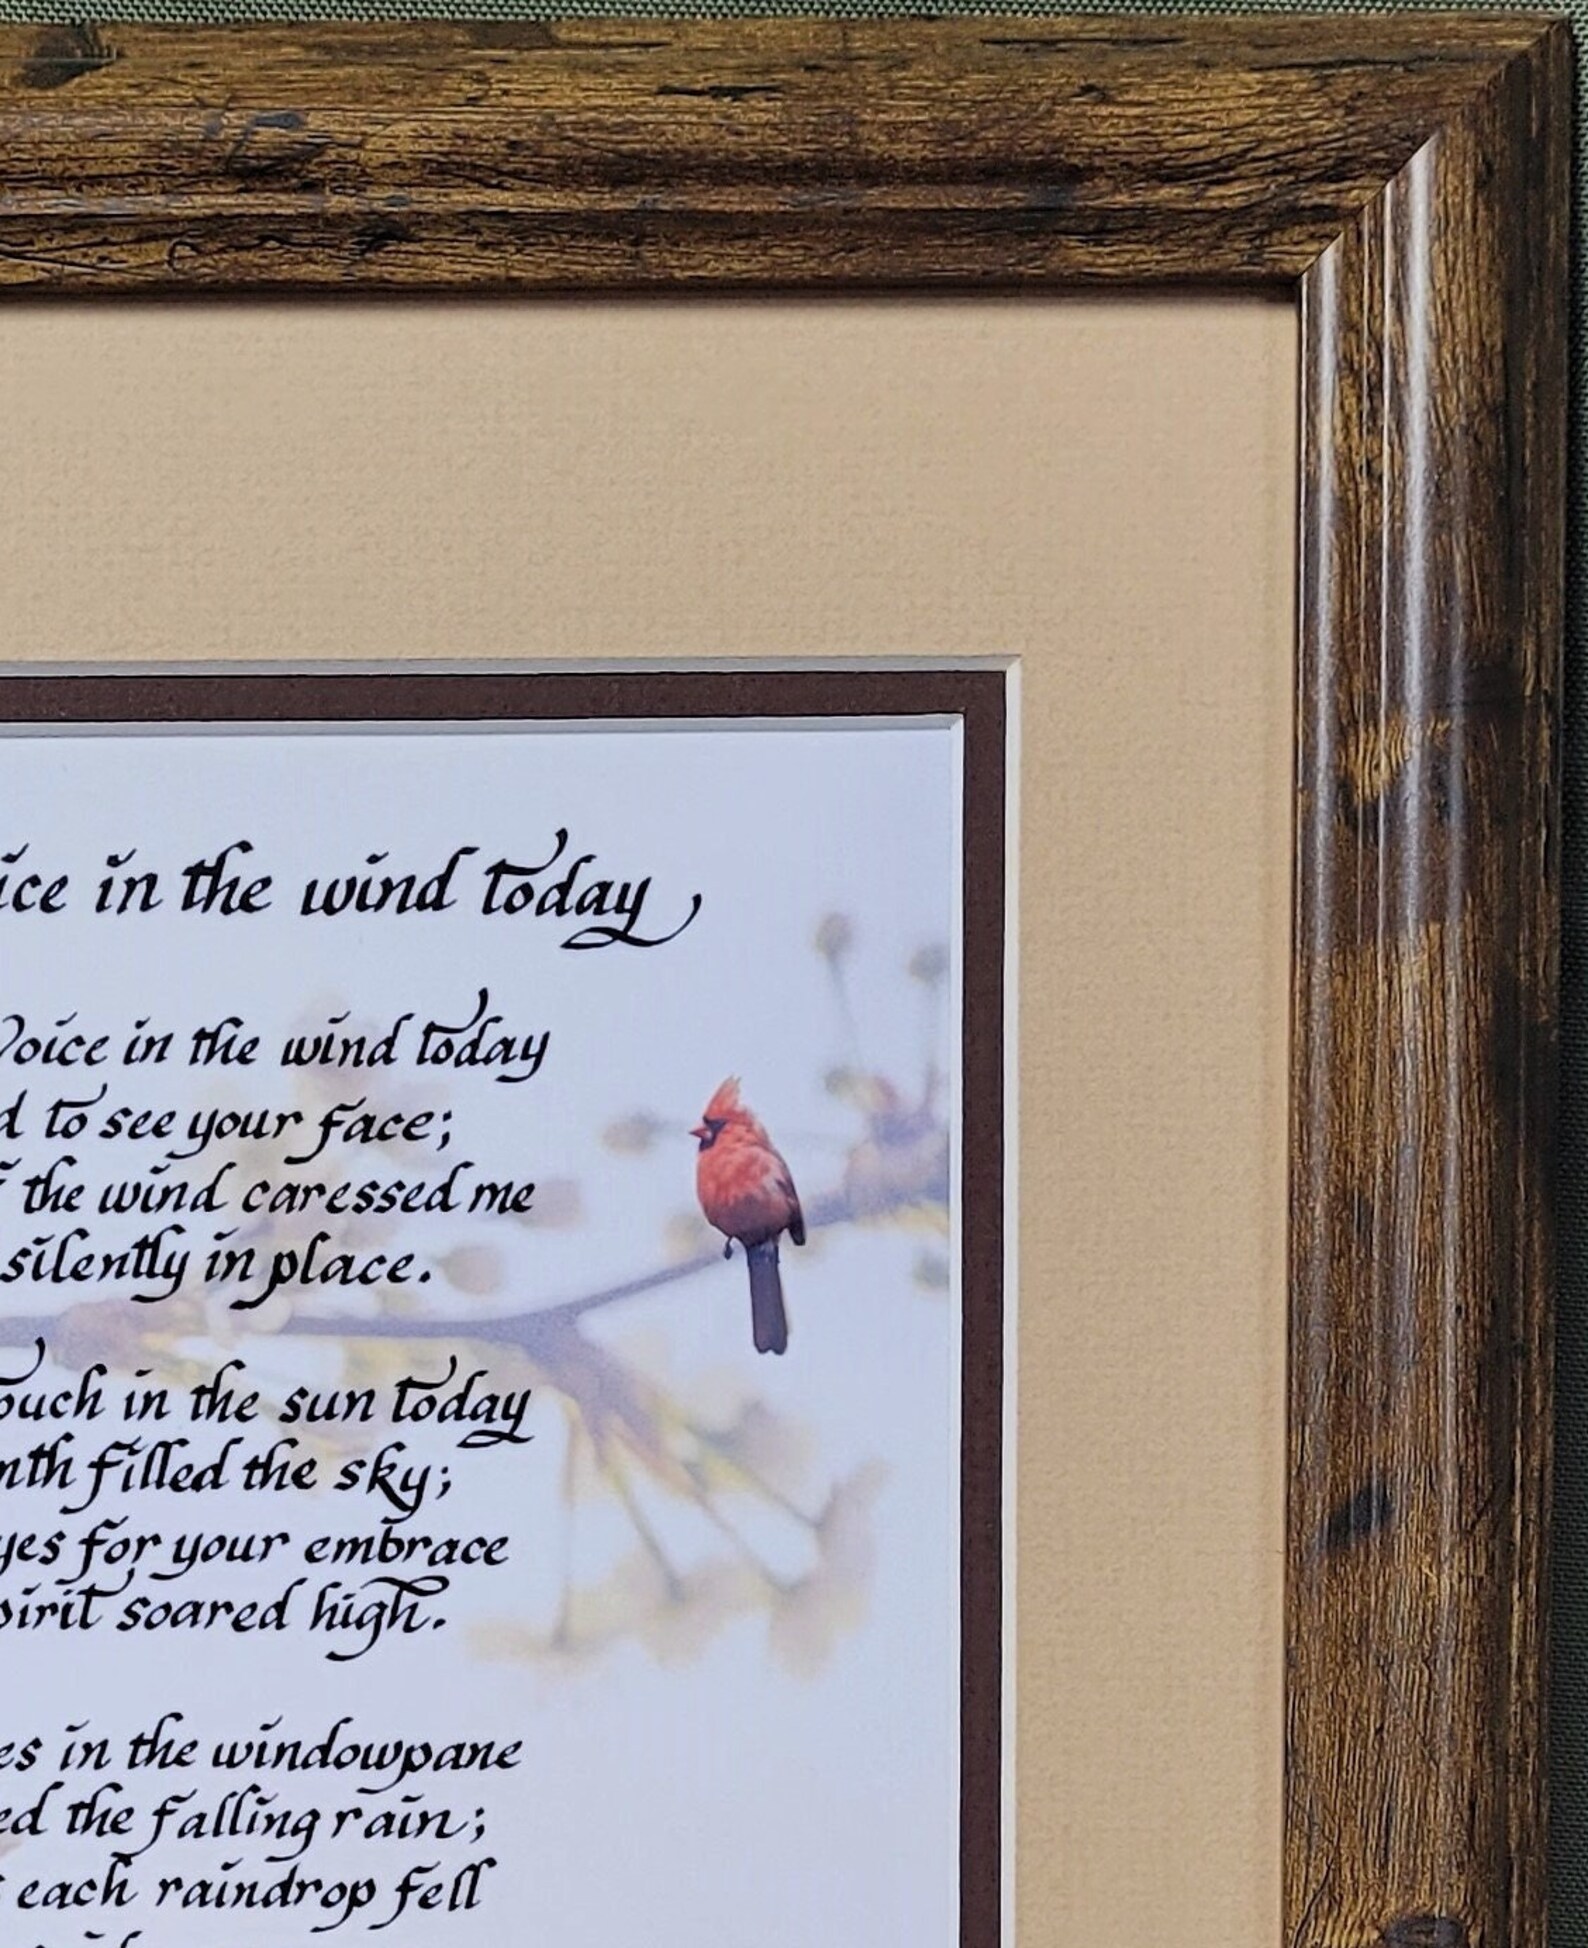 in the wind today
Voice in the wind today
to see your face;
the wind caressed me
silently in place.
in the sun today
filled the sky;
for your embrace
soared high.
in the windowpane
the falling rain;
each raindrop fell